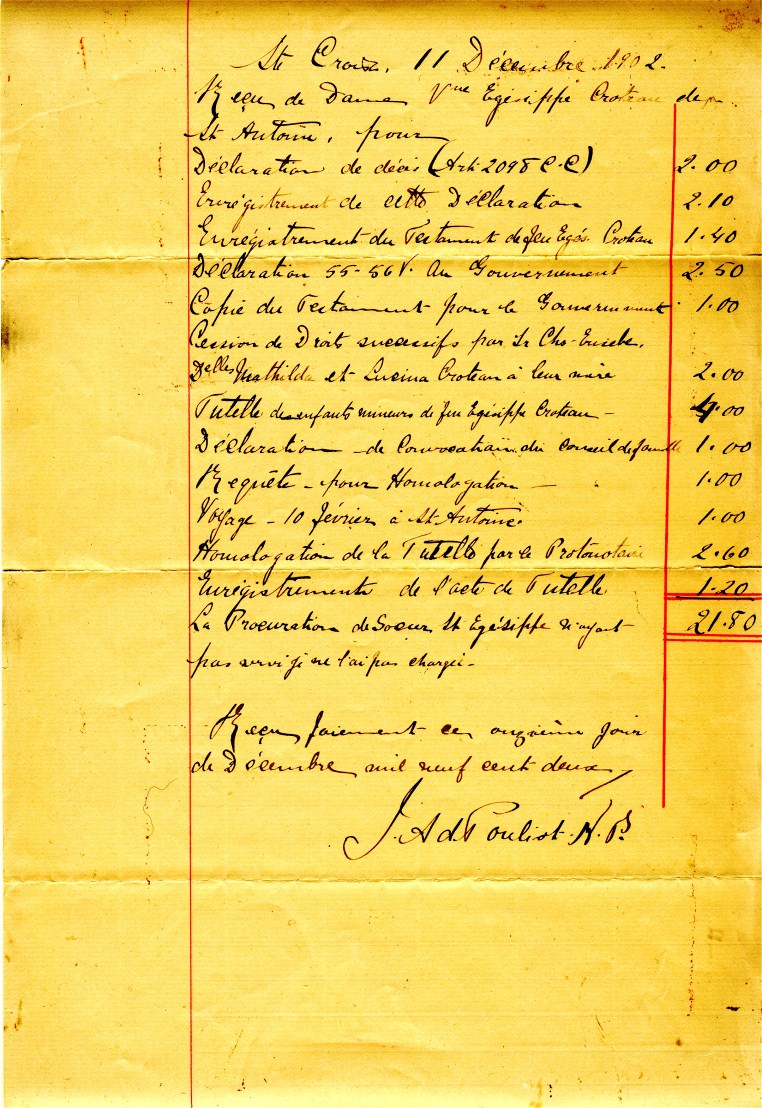 Ste Croix, 11 Décembre 1902.
Reçu de Dame Vve Egésippe Croteau de
St Antoine, pour
Déclaration de décès (Art. 2098 C.C) 2.00
Enrégistrement de cette Déclaration 2.10
Enrégistrement du Testament de feu Egés. Croteau 1.40
Déclaration 55-56 V. Au Gouvernement 2.50
Copie du Testament pour le Gouvernement 1.00
Cession de Droits successifs par Sr Chs-Eusèbe,
Delles Mathilda et Lucina Croteau à leur mère 2.00
Tutelle des enfants mineurs de feu Egésippe Croteau - 4.00
Déclaration - de Convocation du conseil de famille 1.00
Requête - pour Homologation - 1.00
Voyage - 10 février à St Antoine. 1.00
Homologation de la Tutelle par le Protonotaire 2.60
Enrégistrement de l'acte de Tutelle 1.20
La Procuration de Soeur St Egésippe n'ayant 21.80
pas servi je ne l'ai pas chargée -
Reçu paiement ce onzième jour
de Décembre mil neuf cent deux
J. Ad. Pouliot. N.P.